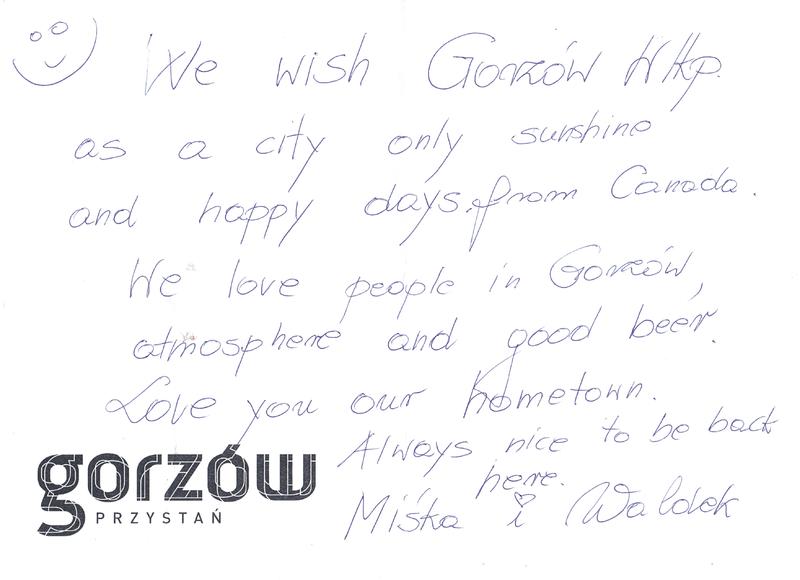 We wish Gorzów Wlkp.
as a city only sunshine
and happy days from Canada.
We love people in Gorzów,
atmosphere and good beer.
Love you our hometown.
Always nice to be back
here.
Miśka i Waldek
gorzów
PRZYSTAŃ